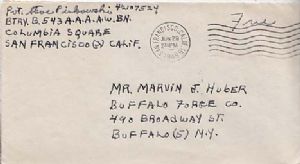 Pvt. Steve Pinkowski 42107524
BTRY. B, 543 A.A.A.A.W. BN.
COLUMBIA SQUARE
SAN FRANCISCO(3) CALIF.
Free
SAN FRANCISCO, CALIF.
JUN 29
MR. MARVIN J. HUBER
BUFFALO FORGE CO.
490 BROADWAY ST.
BUFFALO(5) N.Y.